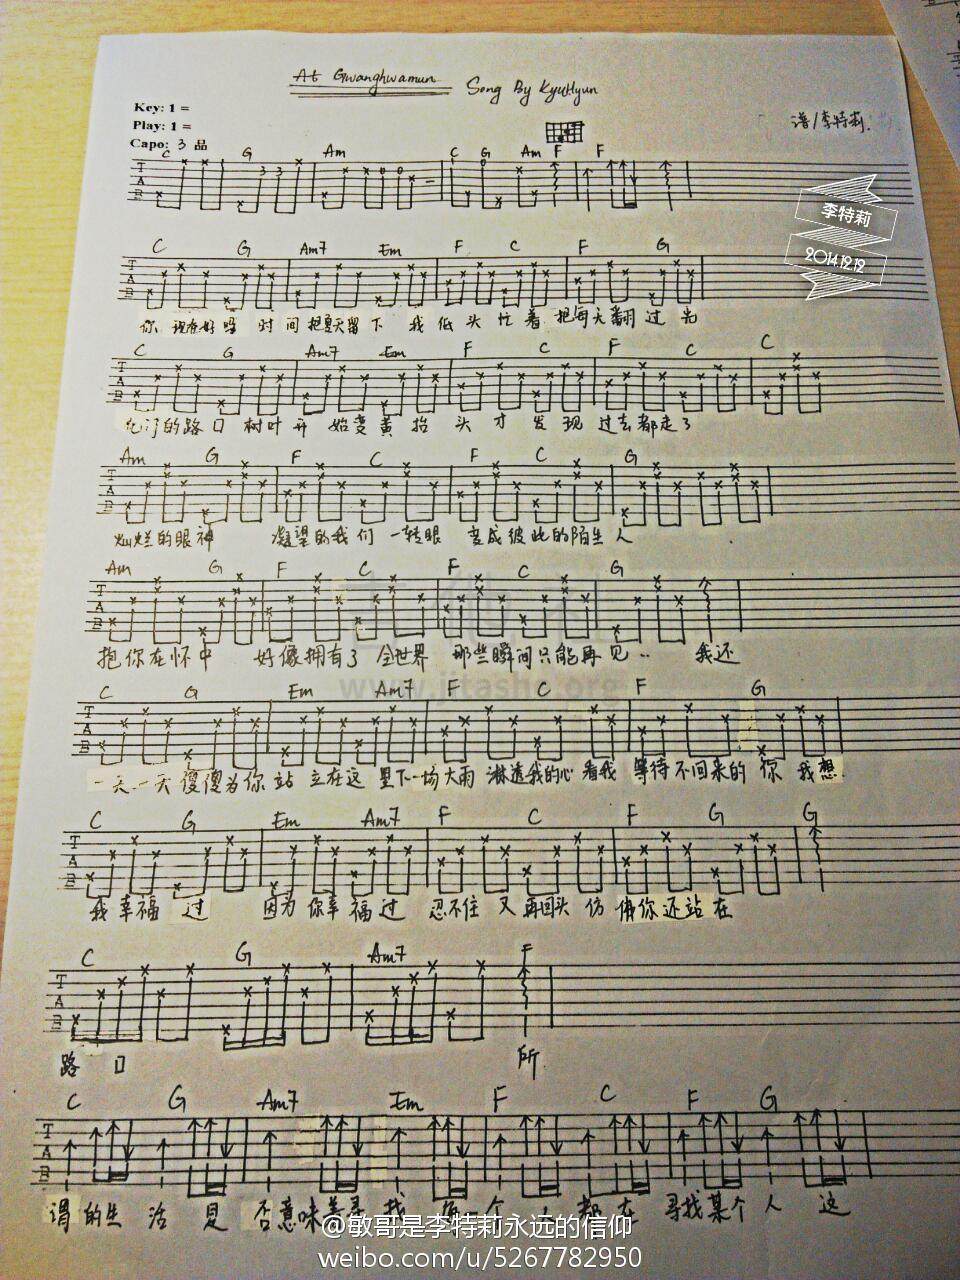 At Gwanghwamun Song By KyuHyun
Key: 1 =
Play: 1 =
Capo: 3 品
谱/李特莉.
C G Am C G Am F F
T
A
B
李特莉
2014.12.12
C G Am7 Em F C F G
T
A
B
你 现在好吗 时间把夏天留下 我低头忙着把每天翻过去
C G Am7 Em F C F C C
T
A
B
的路口树叶开始变黄抬头才发现过去都走了
Am G F C F C G
T
A
B
灿烂的眼神 凝望的我们一转眼 变成彼此的陌生人
Am G F C F C G
T
A
B
抱你在怀中 好像拥有了全世界 那些瞬间只能再见.. 我还
www.jitashe.org
C G Em Am7 F C F G
T
A
B
一天一天傻傻为你站立在这里下一场大雨淋透我的心看我等待不回来的你 我想
C G Em Am7 F C F G G
T
A
B
我幸福过 因为你幸福过 忍不住又再回头仿佛你还站在
C G Am7 F
T
A
B
路口 所
C G Am7 Em F C F G
T
A
B
谓的生活是否意味着寻找 每一个人都在寻找某个人 这
@敏哥是李特莉永远的信仰
weibo.com/u/5267782950